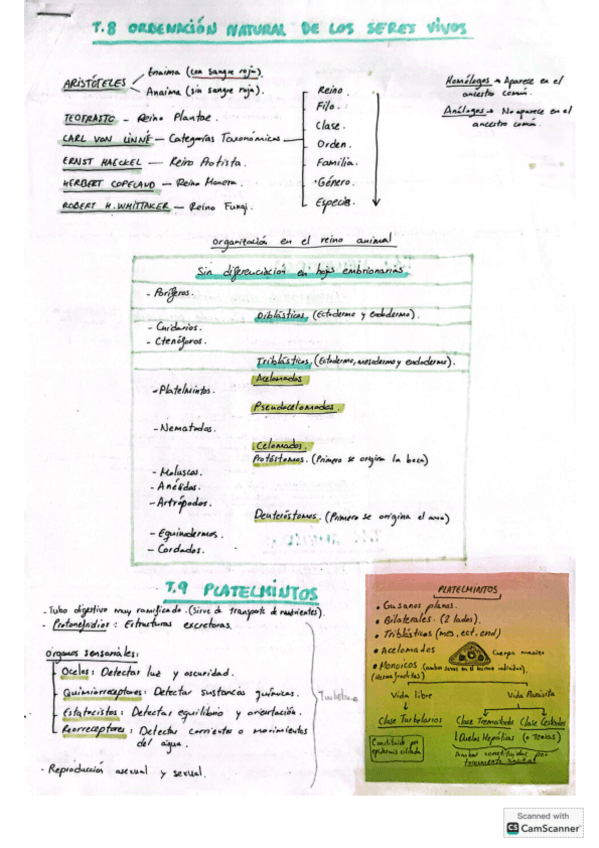 T.8 ORDENACIÓN NATURAL DE LOS SERES VIVOS
ARISTÓTELES
Enaima (con sangre roja).
Anaima (sin sangre roja).
TEOFRASTO - Reino Plantae.
CARL VON LINNÉ - Categorías Taxonómicas
ERNST HAECKEL - Reino Protista.
HERBERT COPELAND - Reino Monera.
ROBERT H. WHITTAKER - Reino Fungi.
Reino.
Filo.
Clase.
Orden.
Familia.
Género.
Especie.
Homólogos → Aparece en el
ancestro común.
Análogos → No aparece en el
ancestro común.
Organización en el reino animal
Sin diferenciación en hojas embrionarias
- Poríferos.
Diblásticos (Ectodermo y endodermo).
- Cnidarios.
- Ctenóforos.
Triblásticos (Ectodermo, mesodermo y endodermo).
Acelomados
- Platelmintos.
Pseudocelomados.
- Nematodos.
Celomados.
Protóstomos. (Primero se origina la boca)
- Moluscos.
- Anélidos.
- Artrópodos.
Deuteróstomos. (Primero se origina el ano)
- Equinodermos.
- Cordados.
T.9 PLATELMINTOS
- Tubo digestivo muy ramificado. (Sirve de transporte de nutrientes).
- Protonefridios: Estructuras excretoras.
Órganos sensoriales:
Ocelos: Detectar luz y oscuridad.
Quimiorreceptores: Detectar sustancias químicas.
Estatocistos: Detectar equilibrio y orientación.
Reorreceptores: Detectar corrientes o movimientos
del agua.
- Reproducción asexual y sexual.
Turbelarios
PLATELMINTOS
• Gusanos planos.
• Bilaterales. (2 lados).
• Triblásticos (mes, ect, end)
• Acelomados
Cuerpo macizo
• Monoicos (ambos sexos en el mismo individuo).
(Hermafroditas)
Vida libre
Vida Parásita
Clase Turbelarios
Clase Trematodo
Clase Cestodos
Duelas Hepáticas
(o Tenias)
Constituido por
epidermis ciliada
Ambos constituidos por
tegumento sincitial
Scanned with
CS CamScanner